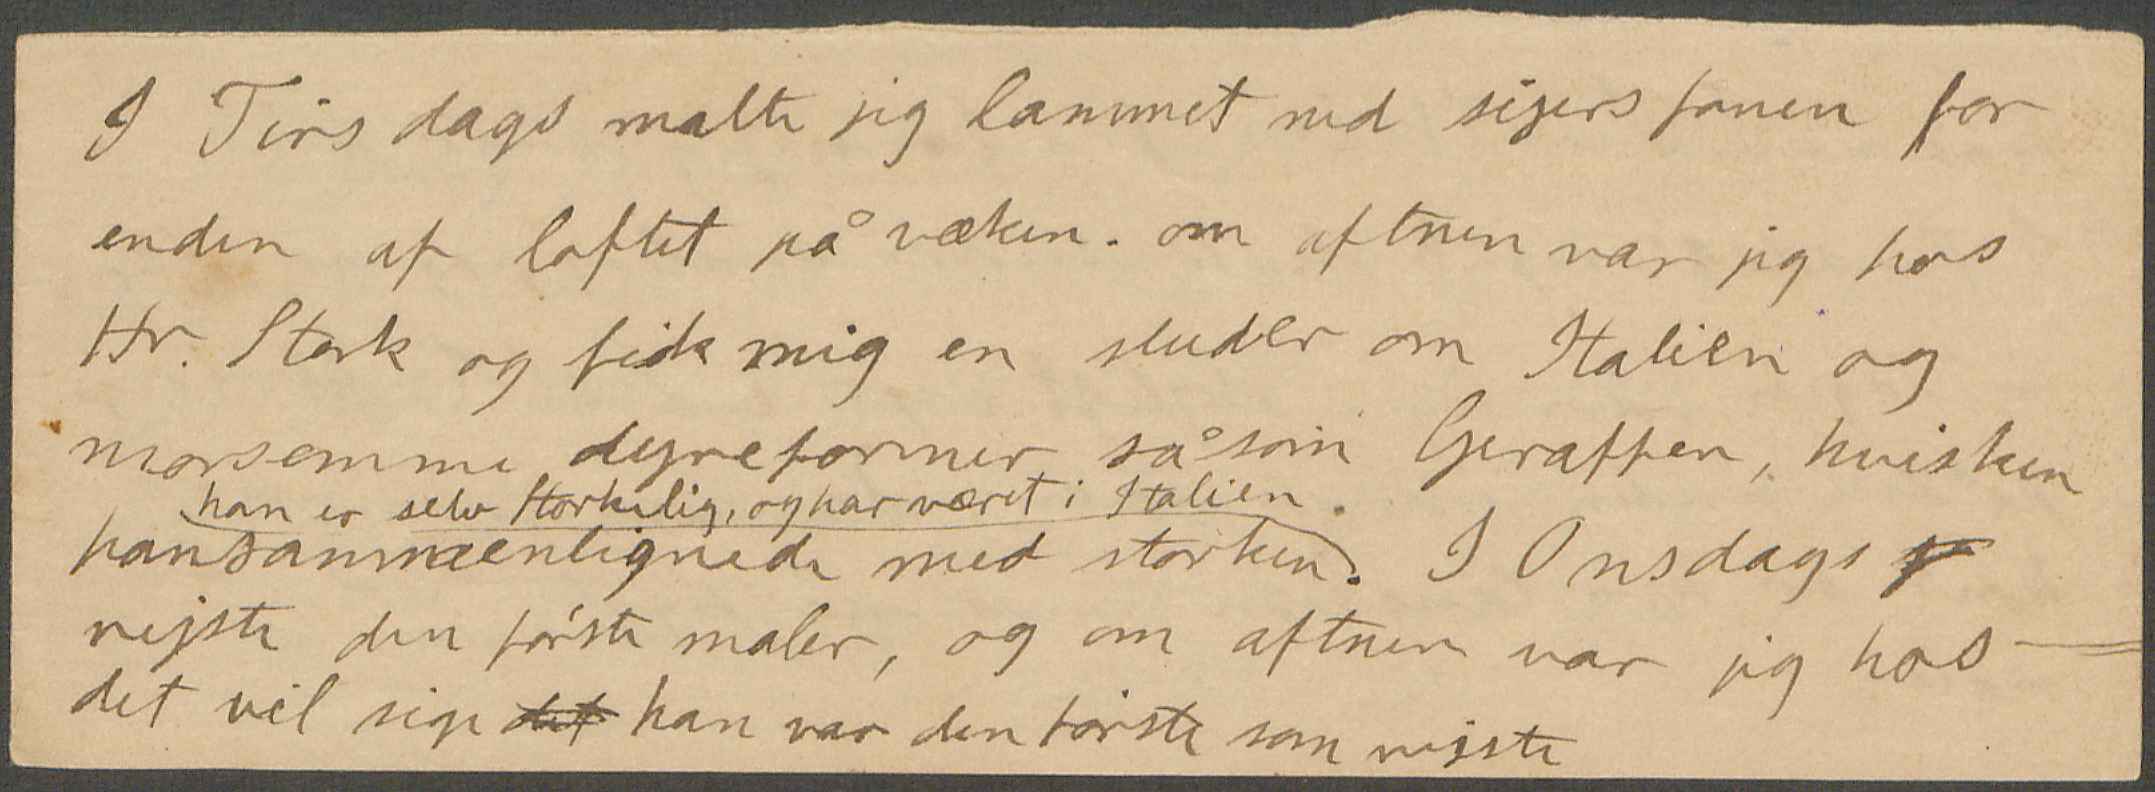 I Tirsdags malte jeg lammet med sejersfanen for
enden af loftet på væken. om aftnen var jeg hos
Hr. Stork og fik mig en sluder om Italien og
morsomme dyreformer såsom Geraffen, hvisken
han er selv Storkelig, og har været i Italien.
han sammenlignede med storken. I Onsdags
rejste den første maler, og om aftnen var jeg hos
det vil sige det han var den første som rejste